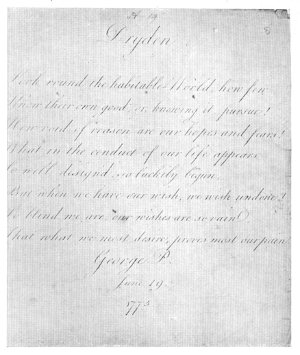 Dryden
Look round the habitable World, how few
Know their own good, or knowing it pursue!
How void of reason are our hopes and fears!
What in the conduct of our life appears
So well design'd, so luckily begun,
But when we have our wish, we wish undone!
So blind we are, our wishes are so vain
That what we most desire, proves most our pain.
George P.
June 19
1775